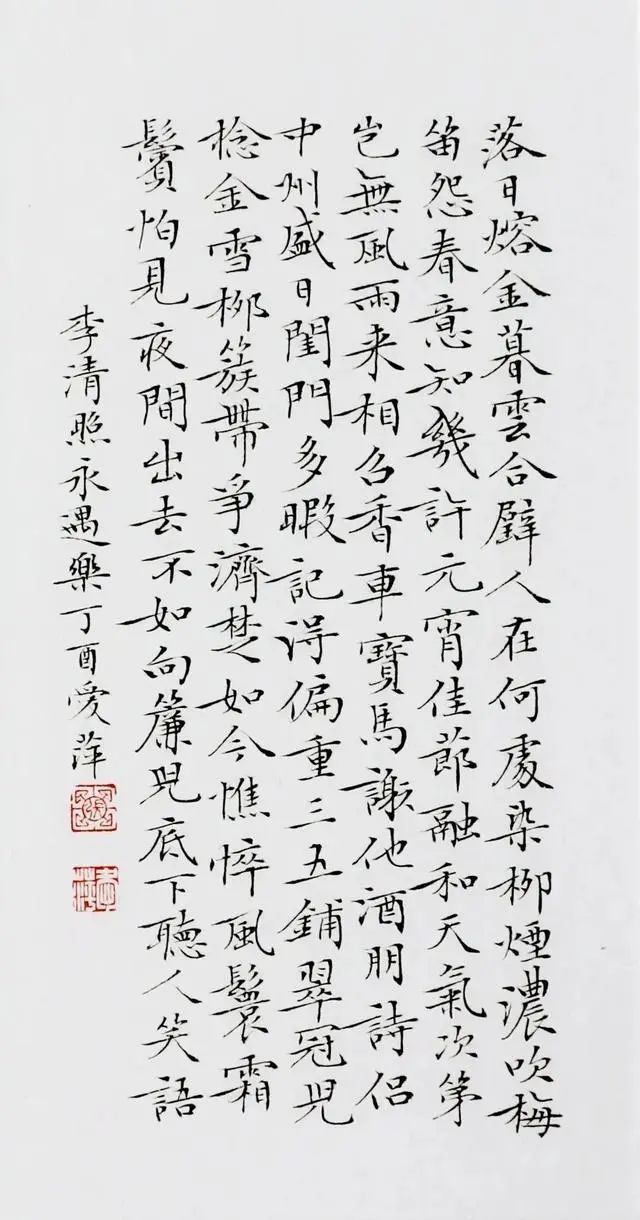 落日熔金暮雲合璧人在何處染柳煙濃吹梅
笛怨春意知幾許元宵佳節融和天氣次第
岂無風雨来相召香車寶馬謝他酒朋詩侣
中州盛日閨門多暇記得偏重三五鋪翠冠兒
捻金雪柳簇帶爭濟楚如今憔悴風鬟霜
鬢怕見夜間出去不如向簾兒底下聽人笑語
李清照永遇樂丁酉愛萍